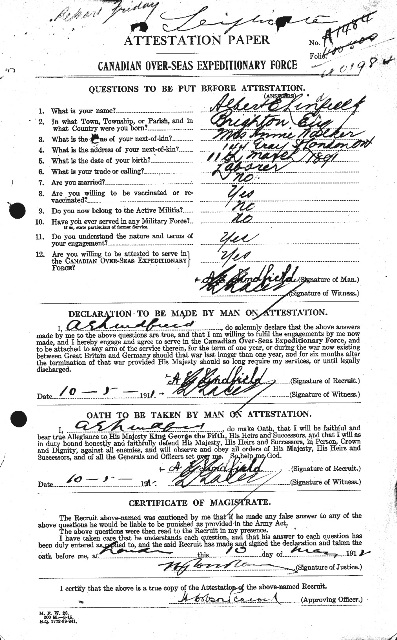 Triplicate
ATTESTATION PAPER
No. A1984
Folio.
CANADIAN OVER-SEAS EXPEDITIONARY FORCE
QUESTIONS TO BE PUT BEFORE ATTESTATION.
(ANSWERS)
1. What is your name? Albert E Lindfield
2. In what Town, Township, or Parish, and in what Country were you born? Brighton Eng
3. What is the name of your next-of-kin? Mrs Annie Walker
4. What is the address of your next-of-kin? Gray St London Ont
5. What is the date of your birth? 11th March 1891
6. What is your trade or calling? Laborer
7. Are you married? No
8. Are you willing to be vaccinated or re-vaccinated? Yes
9. Do you now belong to the Active Militia? No
10. Have you ever served in any Military Force? No
If so, state particulars of former Service.
11. Do you understand the nature and terms of your engagement? Yes
12. Are you willing to be attested to serve in the CANADIAN OVER-SEAS EXPEDITIONARY FORCE? Yes
A E Lindfield (Signature of Man.)
(Signature of Witness.)
DECLARATION TO BE MADE BY MAN ON ATTESTATION.
I, A E Lindfield, do solemnly declare that the above answers
made by me to the above questions are true, and that I am willing to fulfil the engagements by me now
made, and I hereby engage and agree to serve in the Canadian Over-Seas Expeditionary Force, and
to be attached to any arm of the service therein, for the term of one year, or during the war now existing
between Great Britain and Germany should that war last longer than one year, and for six months after
the termination of that war provided His Majesty should so long require my services, or until legally
discharged.
A E Lindfield (Signature of Recruit.)
Date 10-5- 191 (Signature of Witness.)
OATH TO BE TAKEN BY MAN ON ATTESTATION.
I, A E Lindfield, do make Oath, that I will be faithful and
bear true Allegiance to His Majesty King George the Fifth, His Heirs and Successors, and that I will as
in duty bound honestly and faithfully defend His Majesty, His Heirs and Successors, in Person, Crown
and Dignity, against all enemies, and will observe and obey all orders of His Majesty, His Heirs and
Successors, and of all the Generals and Officers set over me. So help me God.
A E Lindfield (Signature of Recruit.)
Date 10-5- 191 (Signature of Witness.)
CERTIFICATE OF MAGISTRATE.
The Recruit above-named was cautioned by me that if he made any false answer to any of the
above questions he would be liable to be punished as provided in the Army Act.
The above questions were then read to the Recruit in my presence.
I have taken care that he understands each question, and that his answer to each question has
been duly entered as replied to, and the said Recruit has made and signed the declaration and taken the
oath before me, at London this 10 day of May 191
(Signature of Justice.)
I certify that the above is a true copy of the Attestation of the above-named Recruit.
(Approving Officer.)
M. F. W. 23.